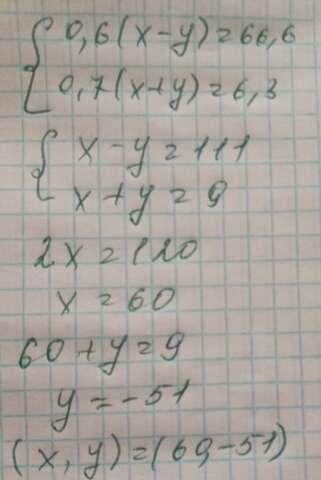 { 0,6(x-y)=66,6
0,7(x+y)=6,3
{ x-y=111
x+y=9
2x=120
x=60
60+y=9
y=-51
(x,y)=(60,-51)